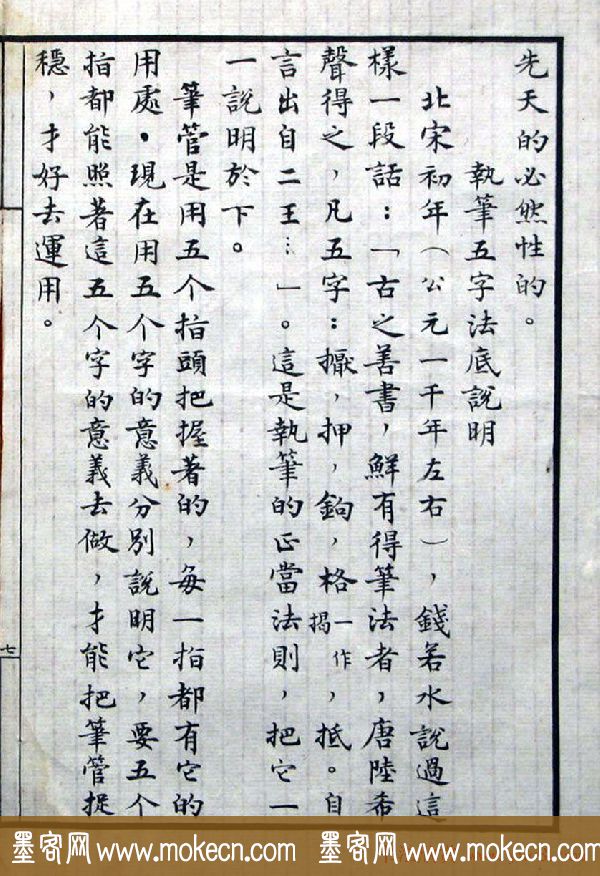 先天的必然性的。
執筆五字法底說明
北宋初年（公元一千年左右），錢若水說過這
樣一段話：「古之善書，鮮有得筆法者，唐陸希
聲得之，凡五字：擫，押，鉤，格一作揭，抵。自
言出自二王…」。這是執筆的正當法則，把它一
一說明於下。
筆管是用五个指頭把握著的，每一指都有它的
用處。現在用五个字的意義分别說明它，要五个
指都能照著這五个字的意義去做，才能把筆管捉
穩，才好去運用。
七
墨客网 www.mokecn.com 墨客网 www.mokecn.com